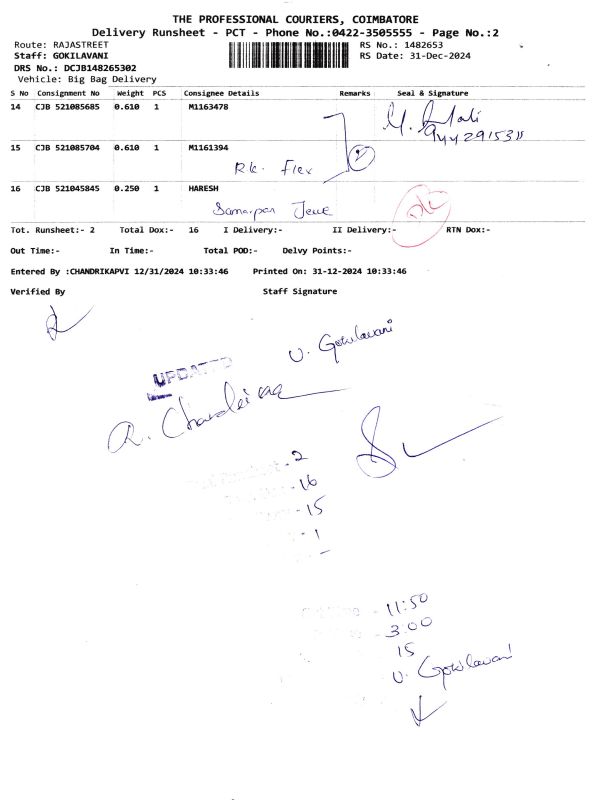 THE PROFESSIONAL COURIERS, COIMBATORE
Delivery Runsheet - PCT - Phone No.:0422-3505555 - Page No.:2
Route: RAJASTREET RS No.: 1482653
Staff: GOKILAVANI RS Date: 31-Dec-2024
DRS No.: DCJB148265302
Vehicle: Big Bag Delivery
S No Consignment No Weight PCS Consignee Details Remarks Seal & Signature
14 CJB 521085685 0.610 1 M1163478
15 CJB 521085704 0.610 1 M1161394
Rk. Flex
16 CJB 521045845 0.250 1 HARESH
Tot. Runsheet:- 2 Total Dox:- 16 I Delivery:- II Delivery:- RTN Dox:-
Out Time:- In Time:- Total POD:- Delvy Points:-
Entered By :CHANDRIKAPVI 12/31/2024 10:33:46 Printed On: 31-12-2024 10:33:46
Verified By Staff Signature
U. Gokilavani
UPDATED
- 2
- 16
- 15
- 1
-
- 11:50
- 3.00
15
U. Gokilavani